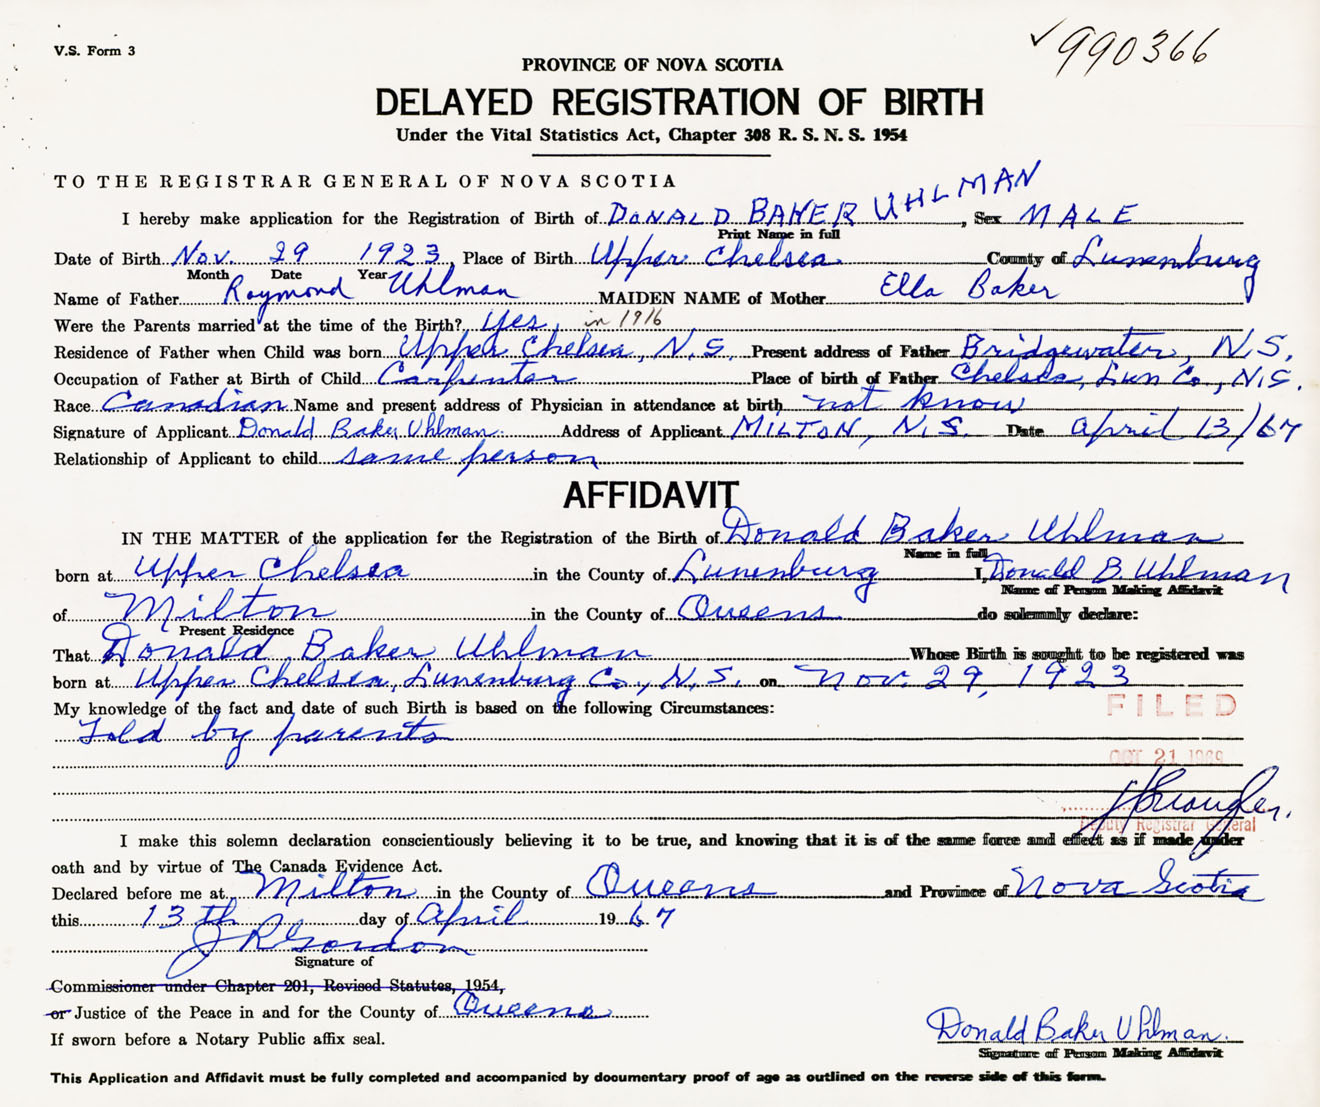 V.S. Form 3
✓990366
PROVINCE OF NOVA SCOTIA
DELAYED REGISTRATION OF BIRTH
Under the Vital Statistics Act, Chapter 308 R. S. N. S. 1954
TO THE REGISTRAR GENERAL OF NOVA SCOTIA
I hereby make application for the Registration of Birth of DONALD BAKER UHLMAN, Sex MALE
Print Name in full
Date of Birth Nov. 29 1923, Place of Birth Upper Chelsea County of Lunenburg
Month Date Year
Name of Father Raymond Uhlman MAIDEN NAME of Mother Ella Baker
Were the Parents married at the time of the Birth? Yes, in 1916
Residence of Father when Child was born Upper Chelsea, N.S. Present address of Father Bridgewater, N.S.
Occupation of Father at Birth of Child Carpenter Place of birth of Father Chelsea, Lun Co., N.S.
Race Canadian Name and present address of Physician in attendance at birth not know
Signature of Applicant Donald Baker Uhlman Address of Applicant MILTON, N.S. Date April 13/67
Relationship of Applicant to child same person
AFFIDAVIT
IN THE MATTER of the application for the Registration of the Birth of Donald Baker Uhlman
Name in full
born at Upper Chelsea in the County of Lunenburg I, Donald B. Uhlman
Name of Person Making Affidavit
of Milton in the County of Queens do solemnly declare:
Present Residence
That Donald Baker Uhlman Whose Birth is sought to be registered was
born at Upper Chelsea, Lunenburg Co., N.S. on Nov. 29, 1923
My knowledge of the fact and date of such Birth is based on the following Circumstances:
FILED
Told by parents
OCT 21 1969
Deputy Registrar General
I make this solemn declaration conscientiously believing it to be true, and knowing that it is of the same force and effect as if made under
oath and by virtue of The Canada Evidence Act.
Declared before me at Milton in the County of Queens and Province of Nova Scotia
this 13th day of April 1967
J R Gordon
Signature of
Commissioner under Chapter 201, Revised Statutes, 1954,
or Justice of the Peace in and for the County of Queens
If sworn before a Notary Public affix seal.
Donald Baker Uhlman
Signature of Person Making Affidavit
This Application and Affidavit must be fully completed and accompanied by documentary proof of age as outlined on the reverse side of this form.